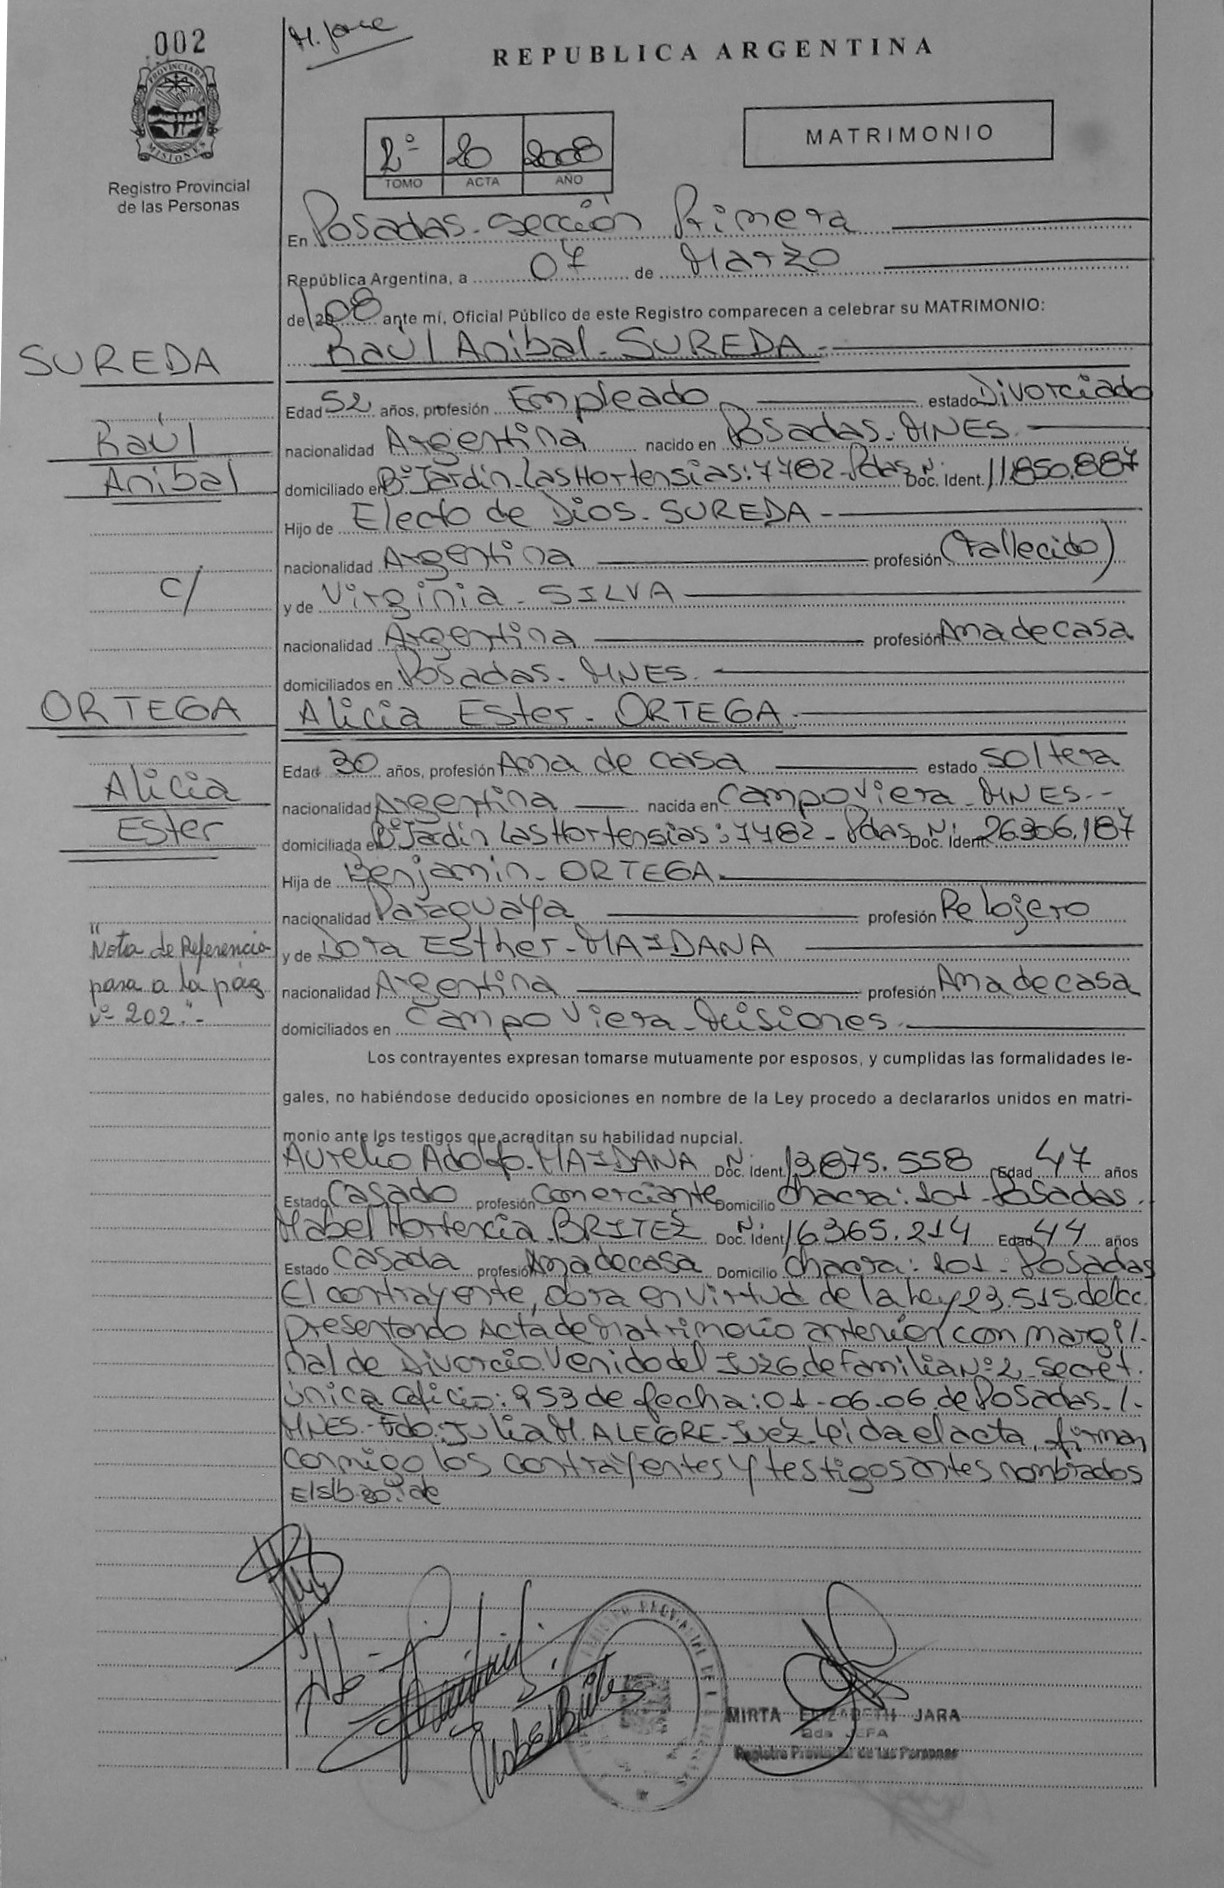 002
M. Jose
REPUBLICA ARGENTINA
PROVINCIA DE
MISIONES
Registro Provincial
de las Personas
2º 20 2008
TOMO ACTA AÑO
MATRIMONIO
En Posadas-sección Primera
República Argentina, a 07 de Marzo
de 2008 ante mí, Oficial Público de este Registro comparecen a celebrar su MATRIMONIO:
SUREDA
Raúl Anibal-SUREDA-
Edad 52 años, profesión Empleado estado Divorciado
Raúl
nacionalidad Argentina nacido en Posadas-MNES.
Anibal
domiciliado en Bº Jardín Las Hortensias: 7782-Pdas. Nº Doc. Ident. 11.850.887
Hijo de Electo de Dios-SUREDA-
nacionalidad Argentina profesión (Fallecido)
C/
y de Virginia-SILVA
nacionalidad Argentina profesión Ama de casa
domiciliados en Posadas-MNES.
ORTEGA
Alicia Ester-ORTEGA-
Edad 30 años, profesión Ama de casa estado Soltera
Alicia
nacionalidad Argentina nacida en Campo Viera-MNES-
Ester
domiciliada en Bº Jardín Las Hortensias: 7782-Pdas. Nº Doc. Ident. 26.306.187
Hija de Benjamin-ORTEGA.
nacionalidad Paraguaya profesión Relojero
"Nota de Referencia
y de Dora Esther-MAIDANA
pasa a la pág
nacionalidad Argentina profesión Ama de casa
Nº 202."-
domiciliados en Campo Viera-Misiones.
Los contrayentes expresan tomarse mutuamente por esposos, y cumplidas las formalidades le-
gales, no habiéndose deducido oposiciones en nombre de la Ley procedo a declararlos unidos en matri-
monio ante los testigos que acreditan su habilidad nupcial.
Aurelio Adolfo-MAIDANA Nº Doc. Ident. 13.875.558 Edad 47 años
Estado Casado profesión Comerciante Domicilio Chacra: 101-Posadas.
Mabel Hortencia BRITEZ Nº Doc. Ident. 16.365.214 Edad 44 años
Estado Casada profesión Ama de casa Domicilio Chacra: 101-Posadas
El contrayente, obra en virtud de la Ley 23.515. del cc.
presentando Acta de Matrimonio anterior con margi/-
nal de Divorcio. Venido del JUZG. de Familia Nº 2, Secret.
única oficio: 953 de fecha: 01-06-06 de Posadas-/-
MNES-Fdo. Julia M. ALEGRE-Juez-Leida el acta, firman
conmigo los contrayentes y testigos antes nombrados
E/S/b.
MIRTA ELIZABETH JARA
2da JEFA
Registro Provincial de las Personas